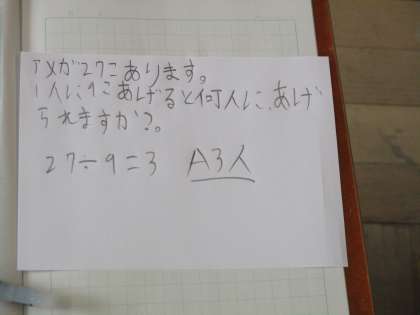 アメが27こあります。
1人に9こあげると何人に、あげ
られますか?。
27÷9=3 A3人